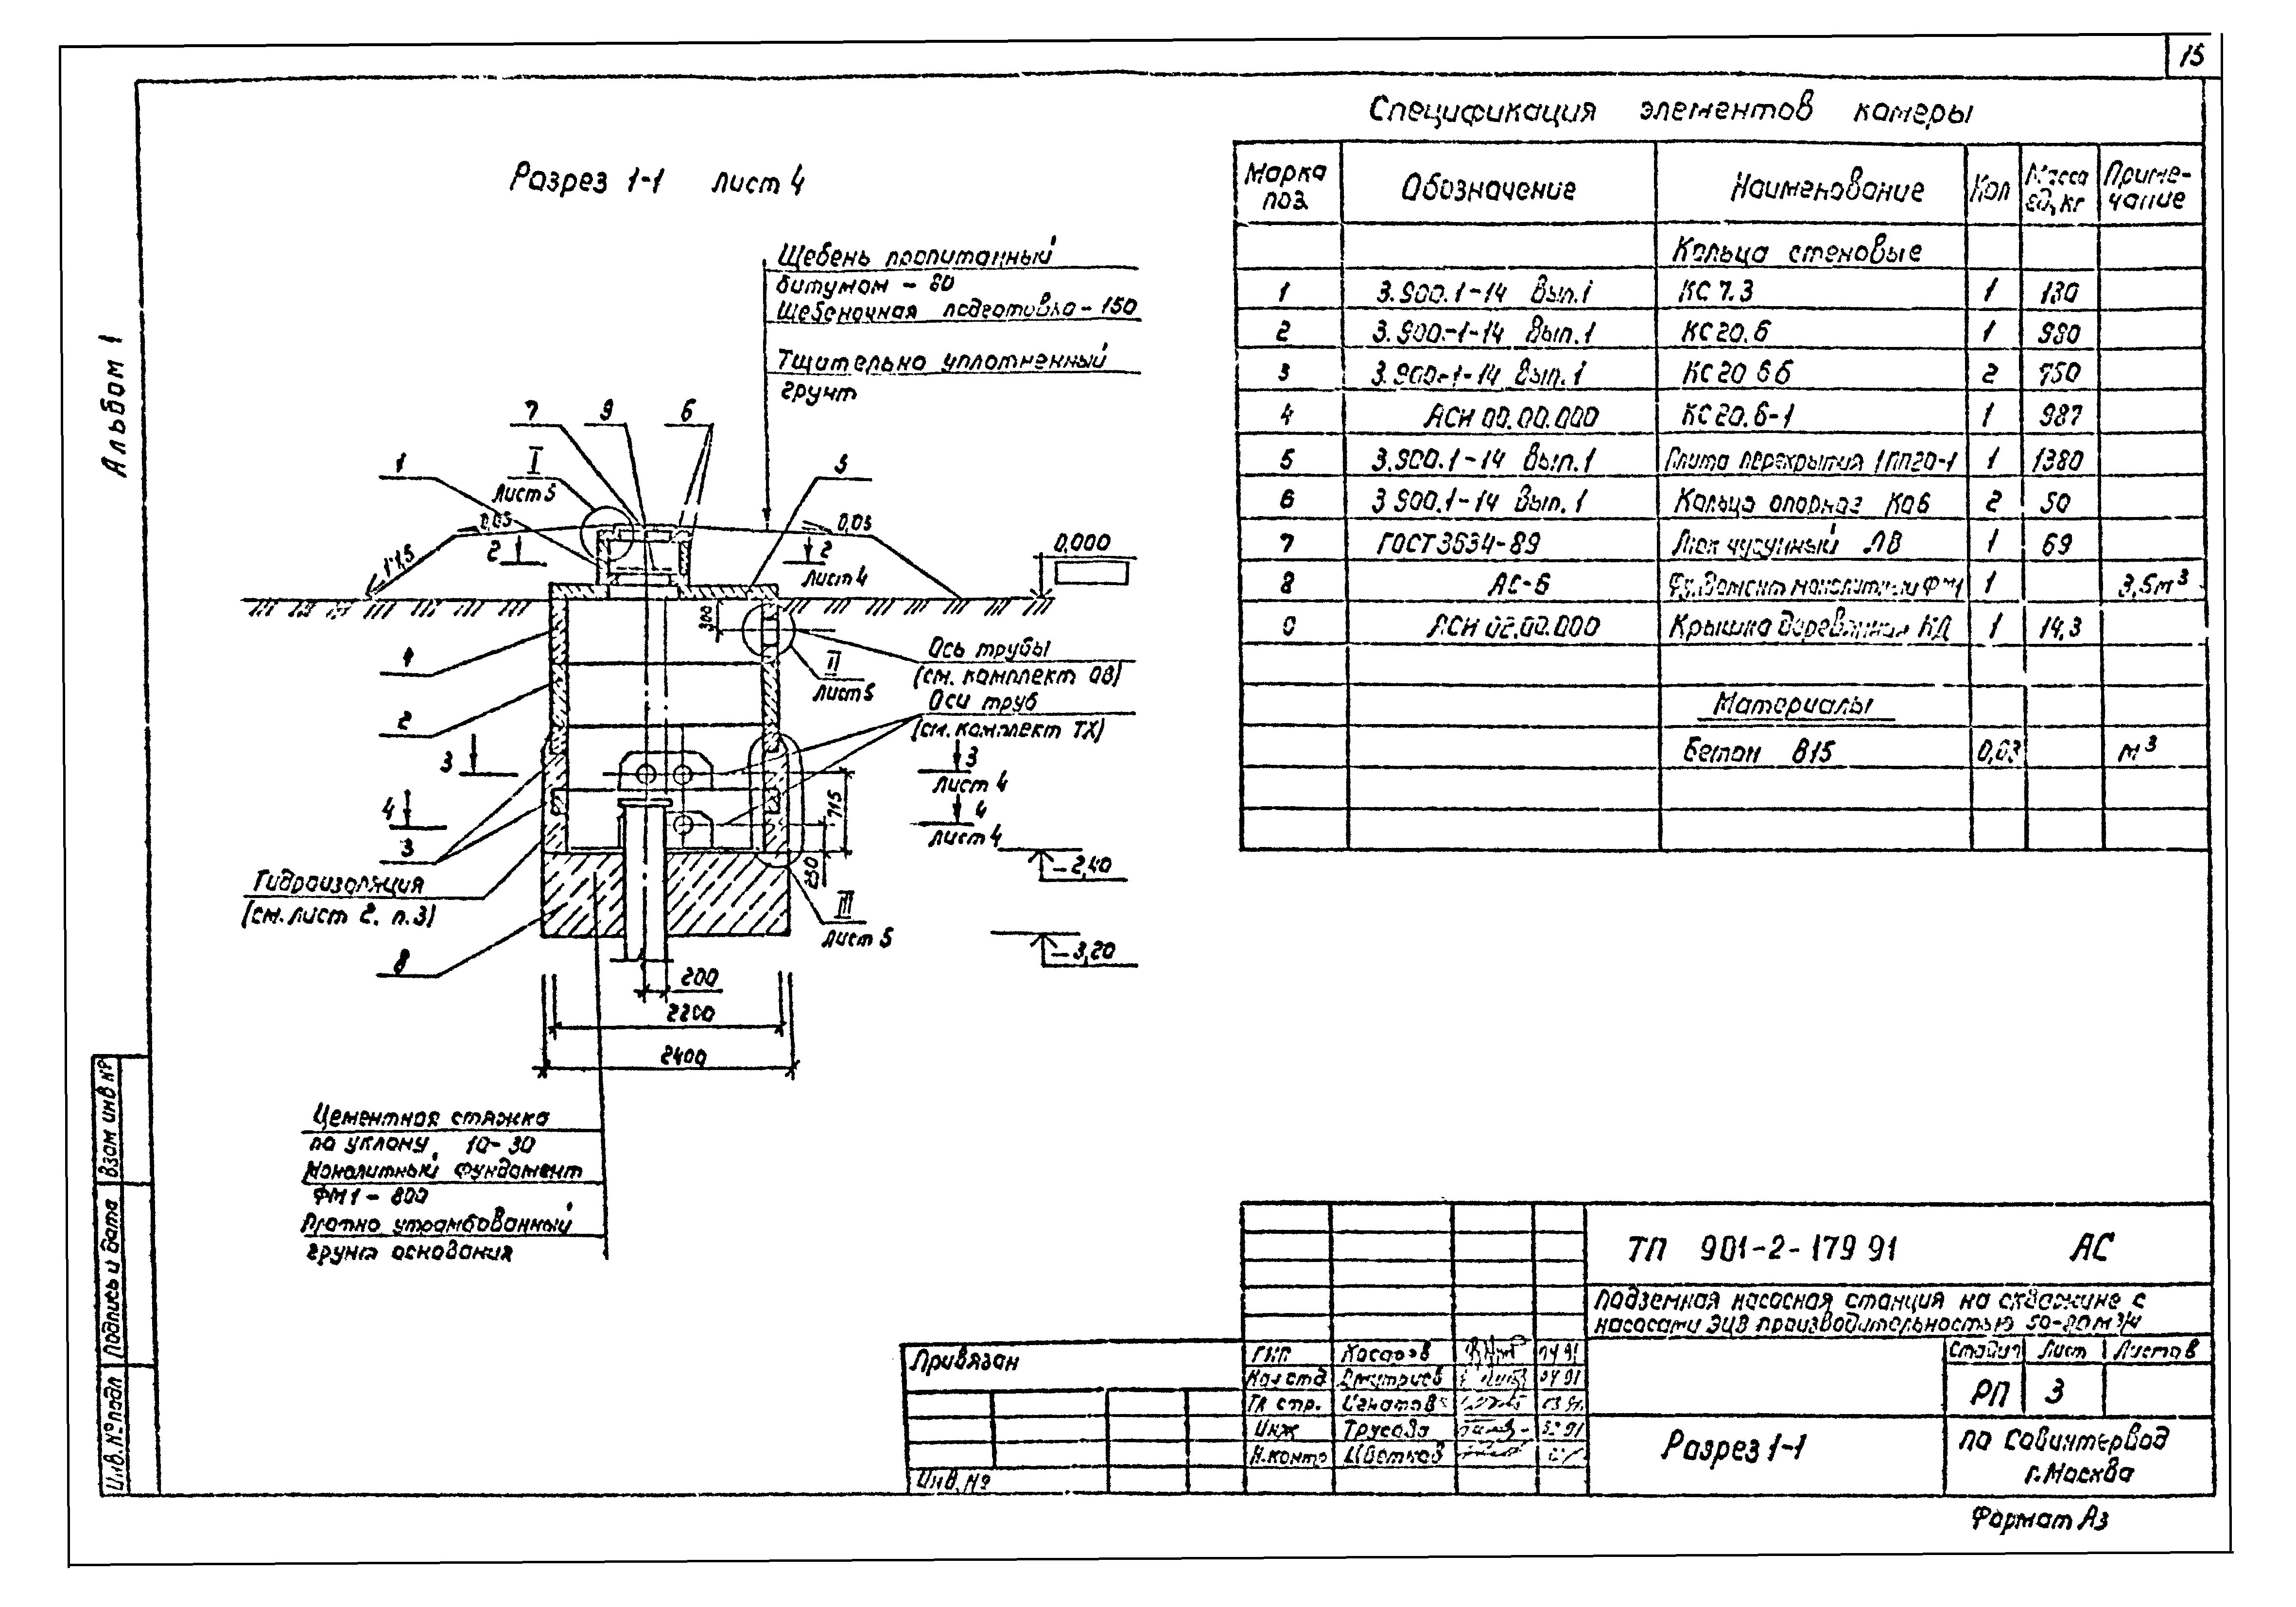 15
Альбом 1
Разрез 1-1 лист 4
Щебень пропитанный
битумом - 80
Щебеночная подготовка - 150
Тщательно уплотненный
грунт
7
9
6
1
I
лист 5
5
0,05
0,05
1:1,5
2
2
лист 4
0,000
300
1
II
лист 5
Ось трубы
(см. комплект ОВ)
Оси труб
(см. комплект ТХ)
2
3
3
лист 4
4
4
лист 4
715
230
3
-2,40
Гидроизоляция
(см. лист 2, п.3)
III
лист 5
8
-3,20
200
2200
2400
Цементная стяжка
по уклону 10-30
Монолитный фундамент
ФМ1 - 800
Плотно утрамбованный
грунт основания
Спецификация элементов камеры
Марка поз. Обозначение Наименование Кол Масса ед, кг Примечание
Кольца стеновые
1 3.900.1-14 Вып.1 КС 7.3 1 130
2 3.900-1-14 Вып.1 КС 20.6 1 980
3 3.900-1-14 Вып.1 КС 20 6б 2 750
4 АСИ 00.00.000 КС 20.6-1 1 987
5 3.900.1-14 Вып.1 Плита перекрытия 1ПП20-1 1 1380
6 3 900.1-14 Вып.1 Кольцо опорное Ко6 2 50
7 ГОСТ 3634-89 Люк чугунный ЛВ 1 69
8 АС-6 Фундамент монолитный ФМ1 1 3,5м³
9 АСИ 02.00.000 Крышка деревянная КД 1 14,3
Материалы
Бетон В15 0,03 м³
ТП 901-2-179 91 АС
Подземная насосная станция на скважине с
насосами ЭЦВ производительностью 50-80 м³/ч
Стадия Лист Листов
РП 3
Разрез 1-1
ПО Совинтервод
г. Москва
ГИП 04 91
Нач отд Дмитриев 04 91
Гл. стр. Игнатов 03 91
Инж Трусова
Н.контр Цветков
Привязан
Инв. №
Взам инв №
Подпись и дата
Инв. № подл
Формат А3